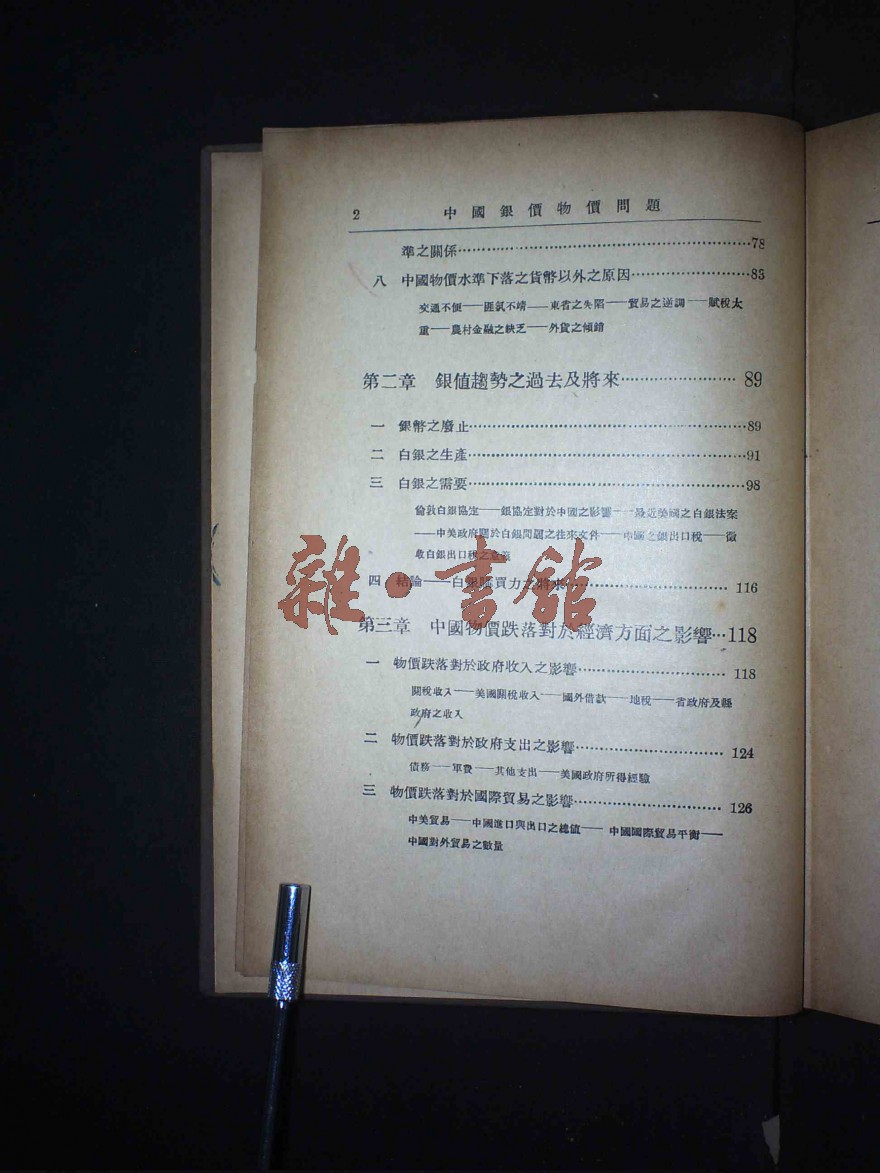 2 中國銀價物價問題
準之關係……78
八 中國物價水準下落之貨幣以外之原因……83
交通不便——匪氛不靖——東省之失陷——貿易之逆調——賦稅太
重——農村金融之缺乏——外貨之傾銷
第二章 銀值趨勢之過去及將來……89
一 銀幣之廢止……89
二 白銀之生產……91
三 白銀之需要……98
倫敦白銀協定——銀協定對於中國之影響——最近美國之白銀法案
——中美政府關於白銀問題之往來文件——中國之銀出口稅——徵
收白銀出口稅之意義
四 結論——白銀購買力之將來……116
雜·書館
第三章 中國物價跌落對於經濟方面之影響…118
一 物價跌落對於政府收入之影響……118
關稅收入——美國關稅收入——國外借款——地稅——省政府及縣
政府之收入
二 物價跌落對於政府支出之影響……124
債務——軍費——其他支出——美國政府所得經驗
三 物價跌落對於國際貿易之影響……126
中美貿易——中國進口與出口之總值——中國國際貿易平衡——
中國對外貿易之數量